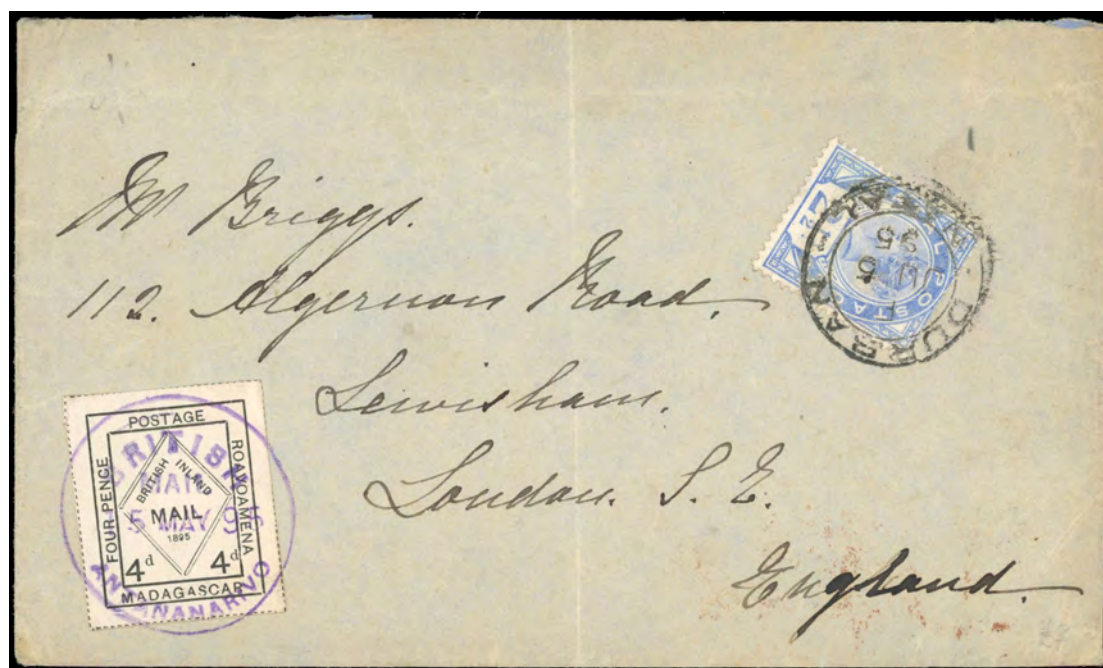 Mr Briggs.
112. Algernon Road,
Lewisham.
London. S. E.
England.
POSTAGE
FOUR PENCE
ROAVOAMENA
MADAGASCAR
BRITISH INLAND
MAIL
1895
4d 4d
BRITISH
MAIL
5 MAY 95
ANTANANARIVO
NATAL POSTAGE
2½
DURBAN
NATAL
JU 5
95